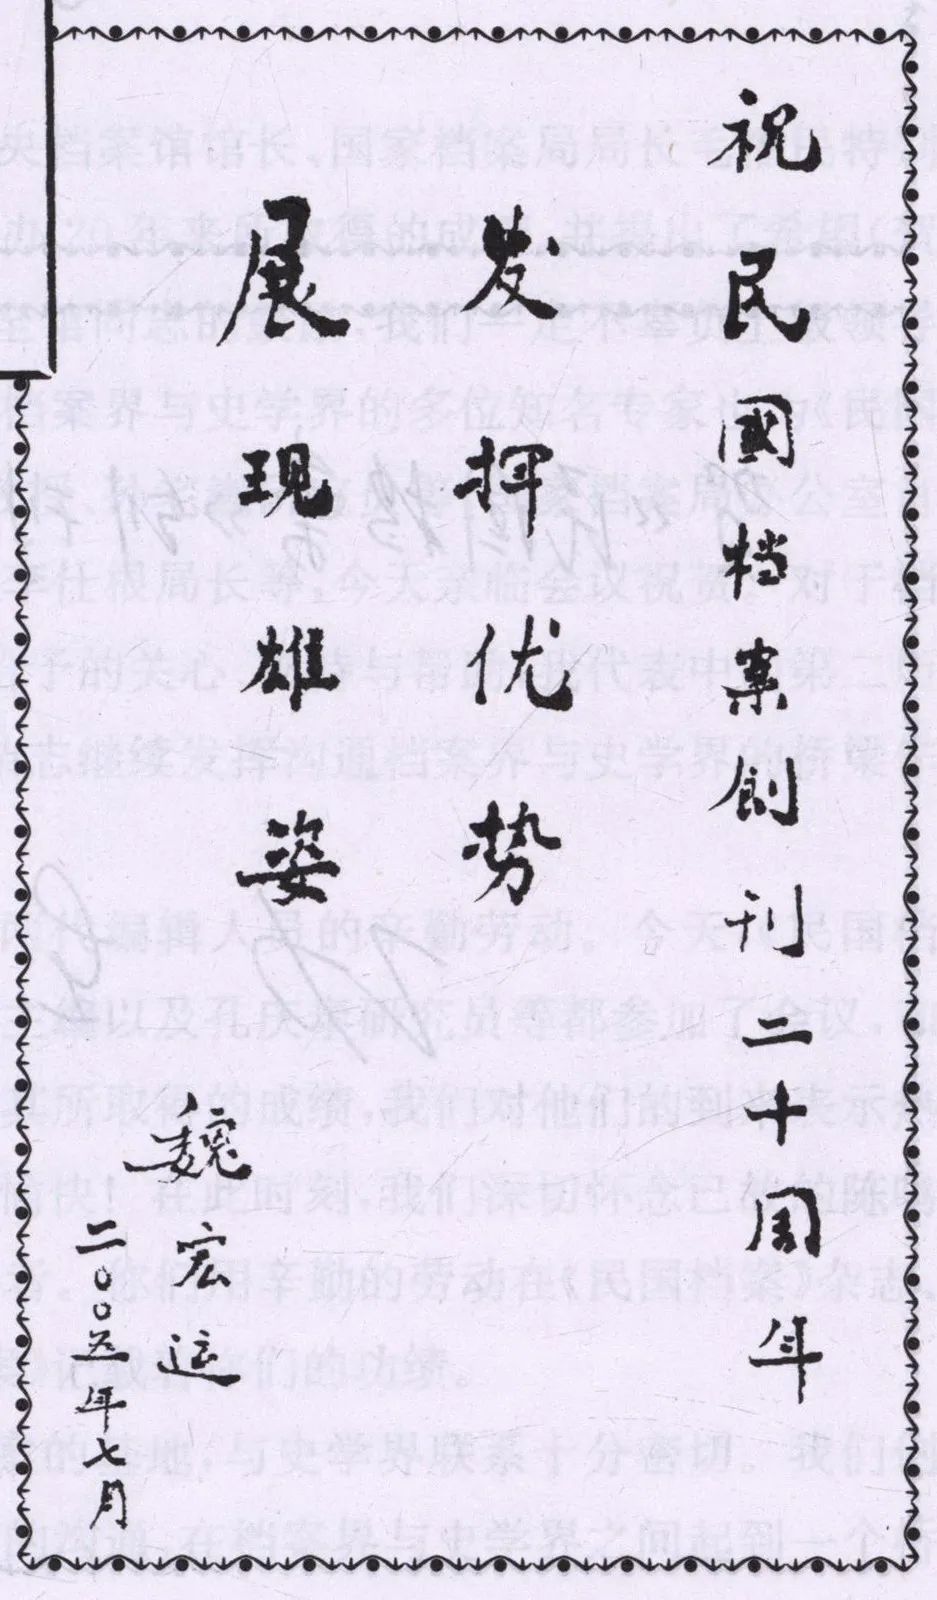 祝民國档案創刊二十周年
发揮优势
展現雄姿
魏宏运
二〇〇五年七月